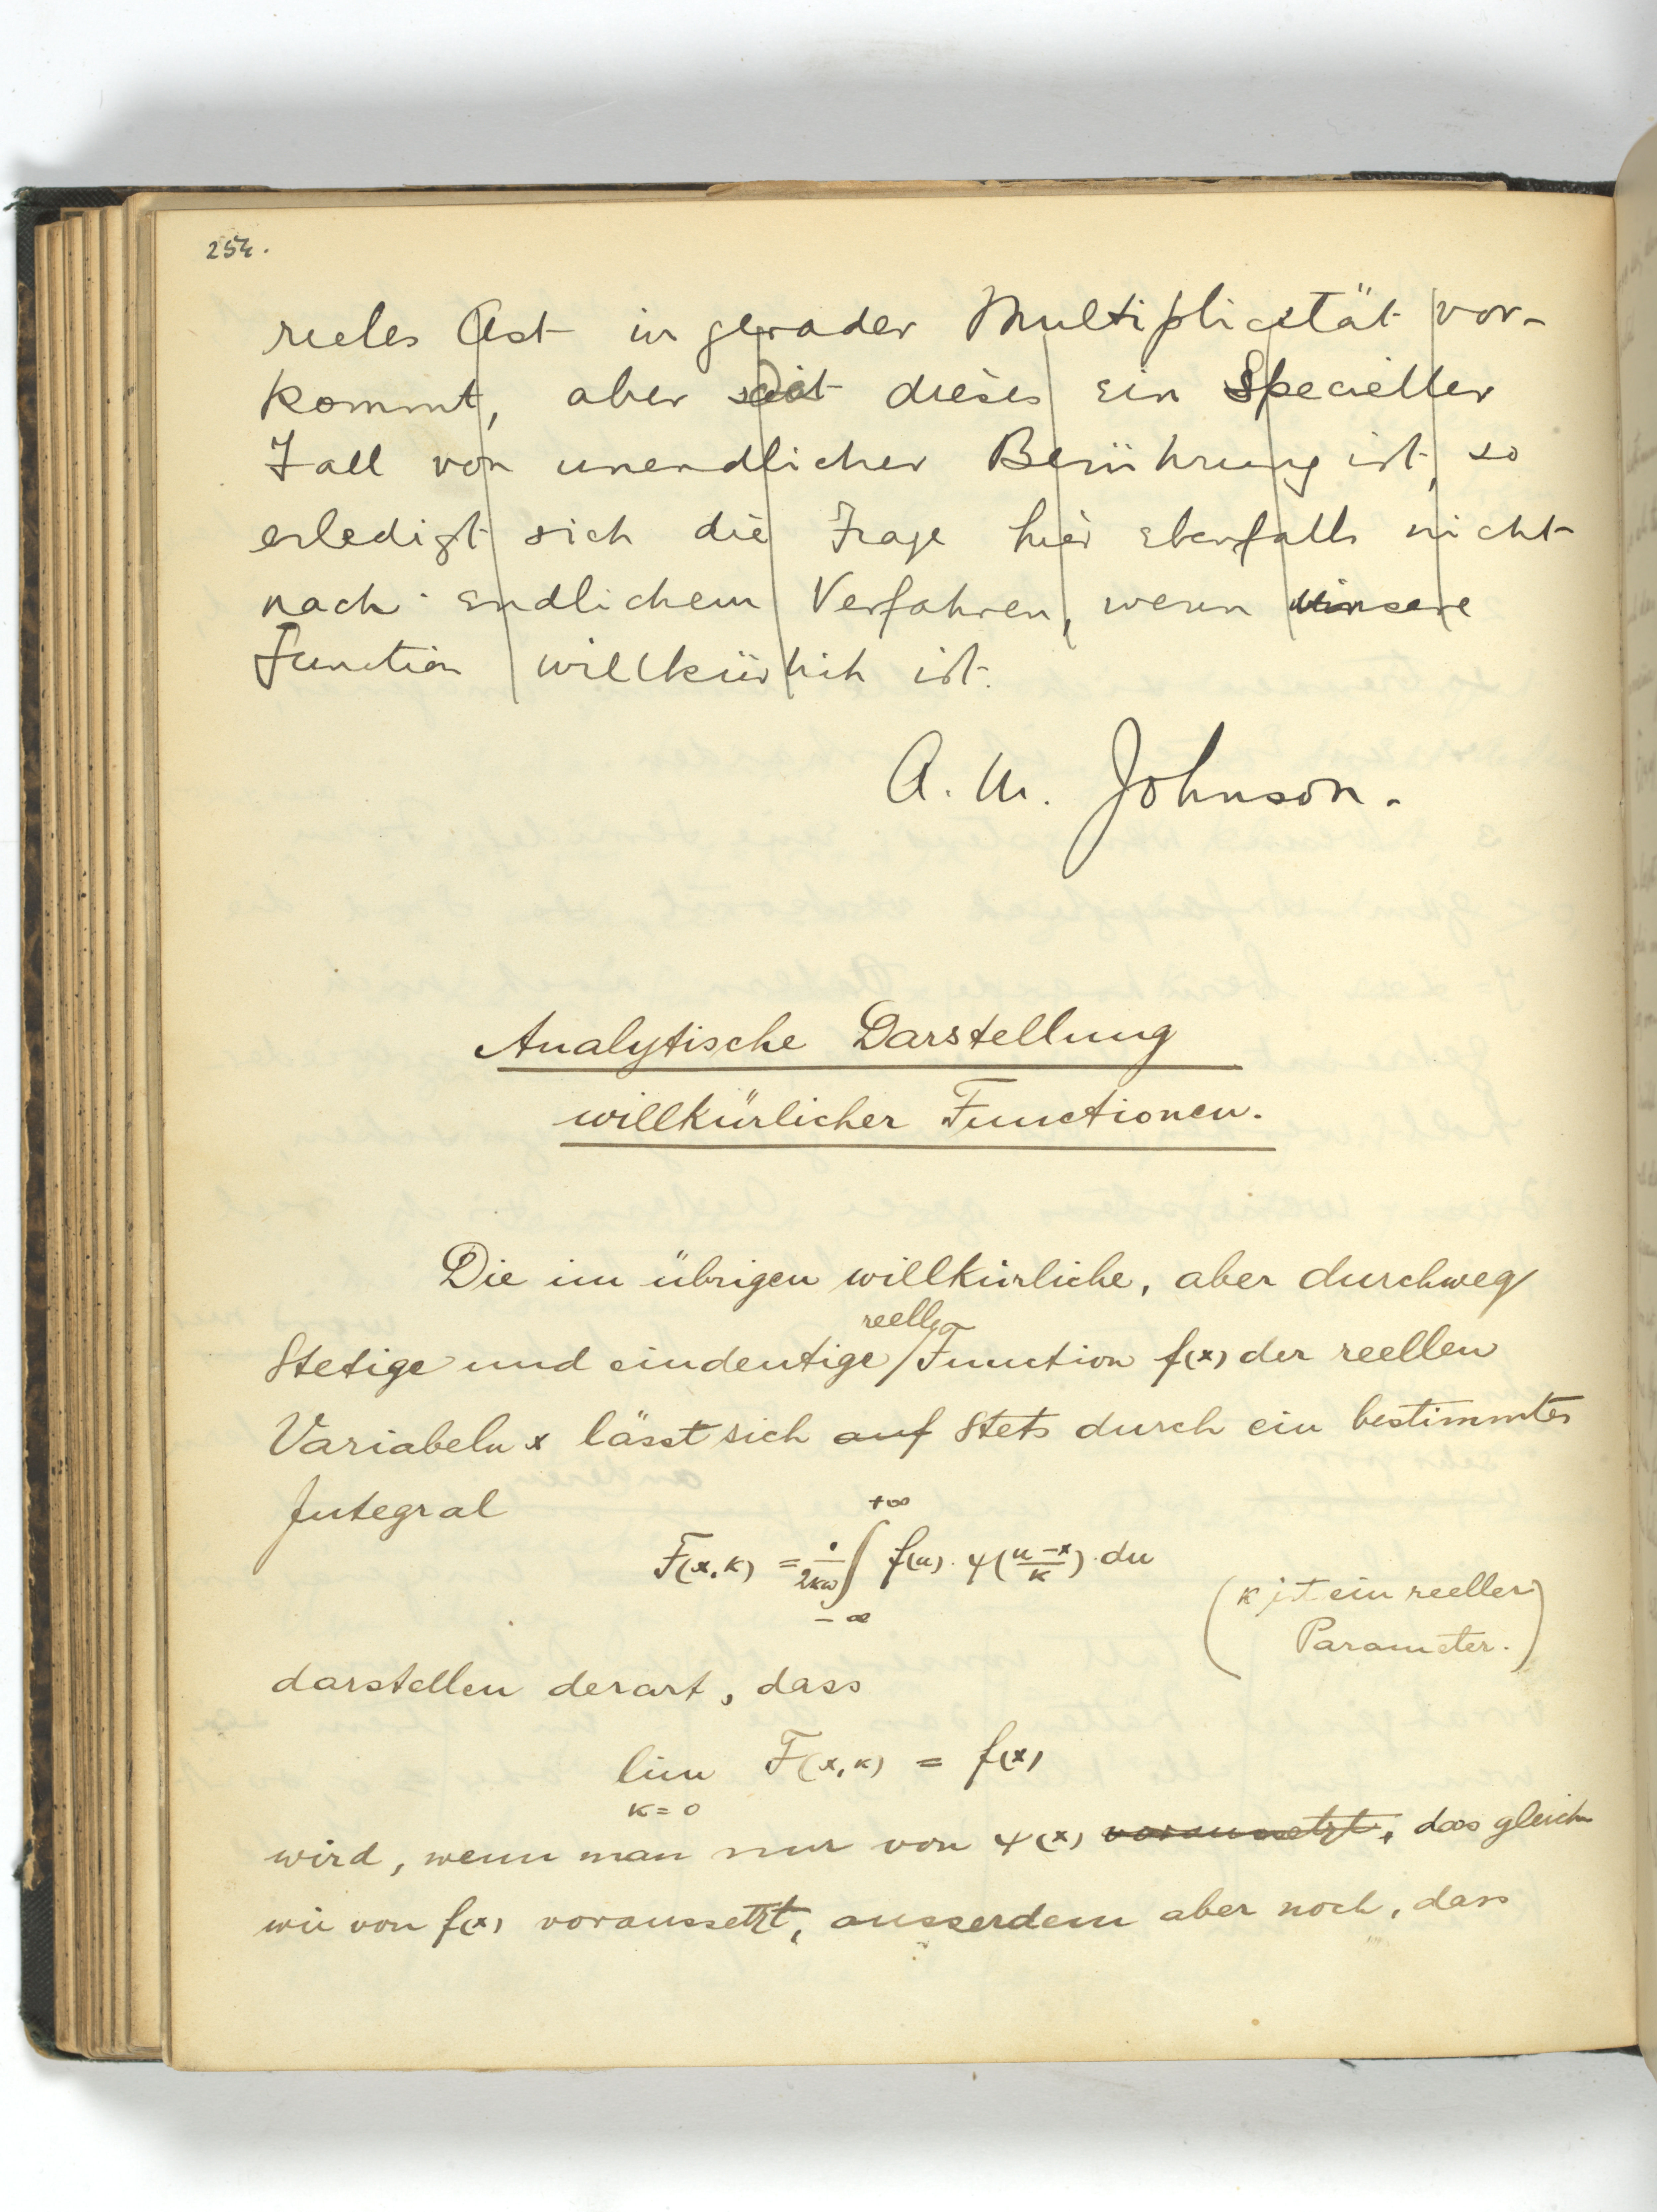 254.
reeles Ast in gerader Multiplicität vor-
kommt, aber da dieses ein Specieller
Fall von unendlicher Berührung ist, so
erledigt sich die Frage hier ebenfalls nicht
nach endlichem Verfahren, wenn unsere
Function willkürlich ist.
A. M. Johnson.
Analytische Darstellung
willkürlicher Functionen.
Die im übrigen willkürliche, aber durchweg
reelle
Stetige und eindeutige / Function f(x) der reellen
Variabeln x lässt sich auf Stets durch ein bestimmtes
Integral
F(x, κ) = 1/2κω ∫_{-∞}^{+∞} f(u) · ψ((u-x)/κ) · du
(κ ist ein reeller
Parameter.)
darstellen derart, dass
lim F(x, κ) = f(x)
κ = 0
wird, wenn man nur von ψ(x) voraussetzt, das gleiche
wie von f(x) voraussetzt, ausserdem aber noch, dass